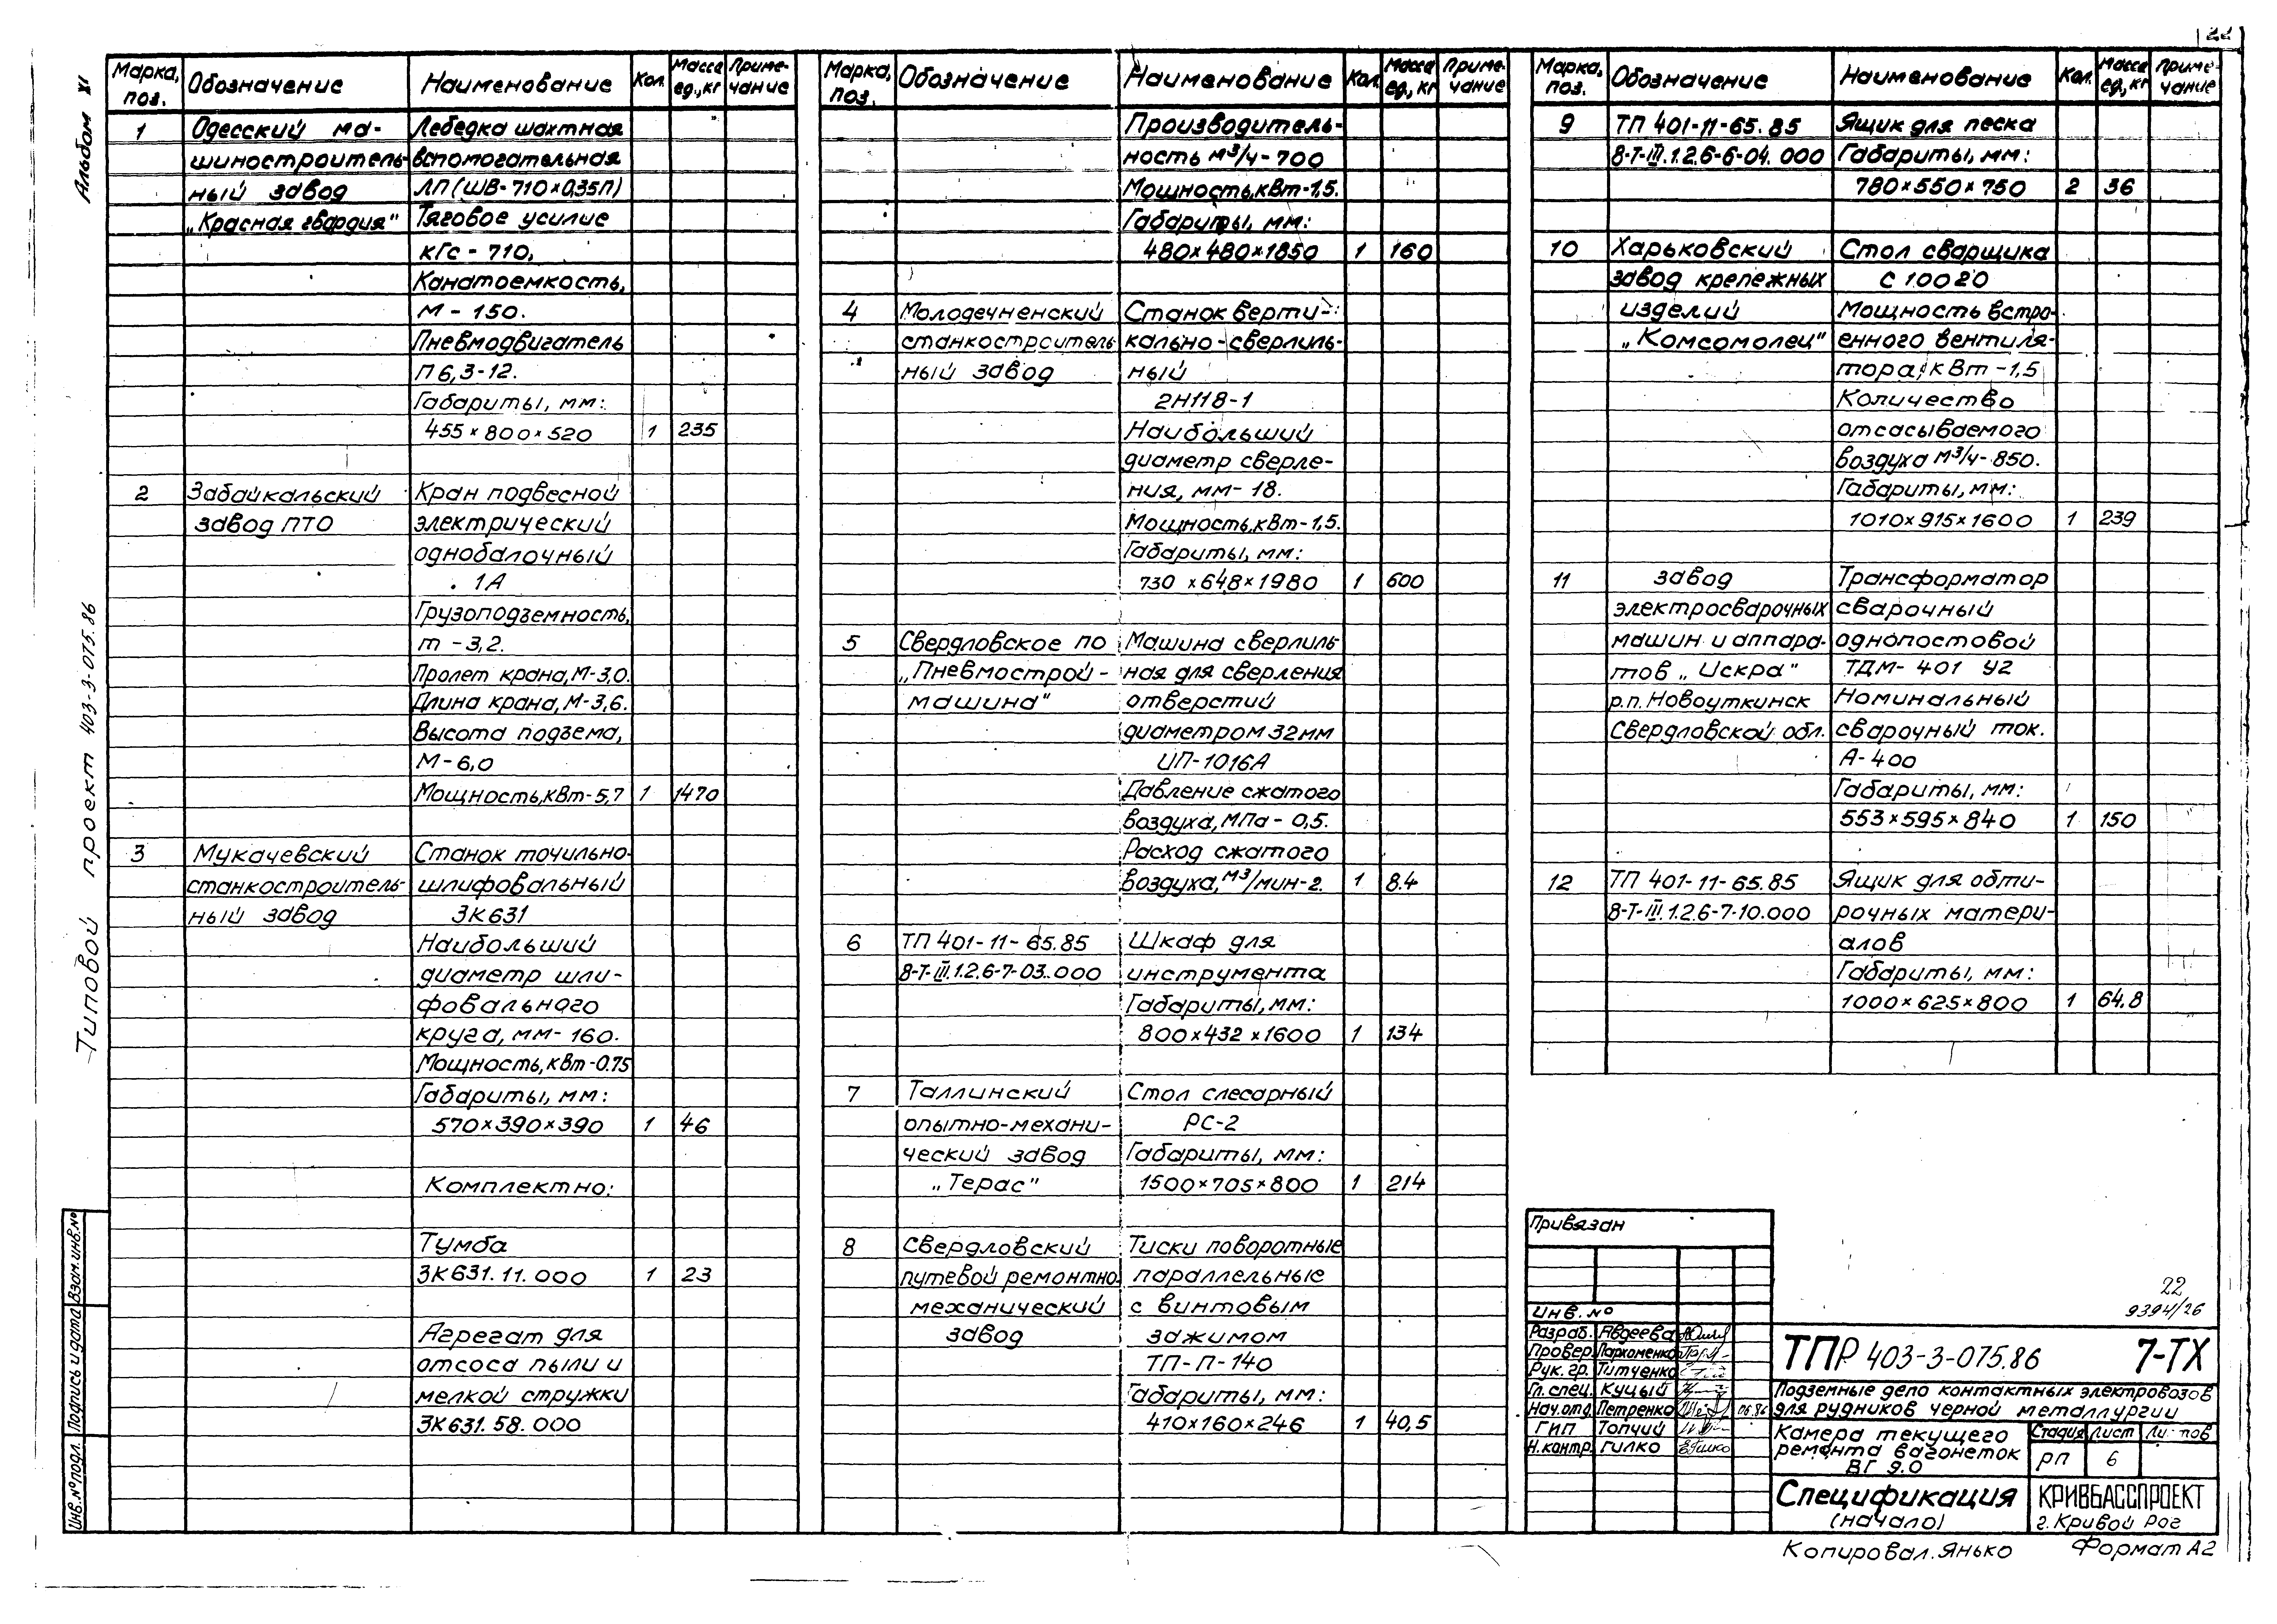 22
Альбом XI
Типовой проект 403-3-075.86
Марка, поз.
Обозначение
Наименование
Кол.
Масса ед., кг
Примечание
1
Одесский ма-
шиностроитель-
ный завод
„Красная гвардия"
Лебедка шахтная
вспомогательная
ЛП (ШВ-710×0,35П)
Тяговое усилие
кГс - 710,
Канатоемкость,
М - 150.
Пневмодвигатель
П 6,3-12.
Габариты, мм:
455×800×520 1 235
2
Забайкальский
завод ПТО
Кран подвесной
электрический
однобалочный
1А
Грузоподъемность,
т - 3,2.
Пролет крана, М-3,0.
Длина крана, М-3,6.
Высота подъема,
М-6,0
Мощность, кВт-5,7 1 1470
3
Мукачевский
станкостроитель-
ный завод
Станок точильно-
шлифовальный
3К631
Наибольший
диаметр шли-
фовального
круга, мм-160.
Мощность, кВт-0.75
Габариты, мм:
570×390×390 1 46
Комплектно:
Тумба
3К631.11.000 1 23
Агрегат для
отсоса пыли и
мелкой стружки
3К631.58.000
Марка, поз.
Обозначение
Наименование
Кол.
Масса ед., кг
Примечание
Производитель-
ность м³/ч-700
Мощность, кВт-1,5.
Габариты, мм:
480×480×1850 1 160
4
Молодечненский
станкостроитель
ный завод
Станок верти-
кально-сверлиль-
ный
2Н118-1
Наибольший
диаметр сверле-
ния, мм-18.
Мощность, кВт-1,5.
Габариты, мм:
730×648×1980 1 600
5
Свердловское по
„Пневмострой-
машина"
Машина сверлиль
ная для сверления
отверстий
диаметром 32мм
ИП-1016А
Давление сжатого
воздуха, МПа-0,5.
Расход сжатого
воздуха, м³/мин-2. 1 8.4
6
ТП 401-11-65.85
8-Т-III.1.2.6-7-03.000
Шкаф для
инструмента
Габариты, мм:
800×432×1600 1 134
7
Таллинский
опытно-механи-
ческий завод
„Терас"
Стол слесарный
РС-2
Габариты, мм:
1500×705×800 1 214
8
Свердловский
путевой ремонтно-
механический
завод
Тиски поворотные
параллельные
с винтовым
зажимом
ТП-П-140
Габариты, мм:
410×160×246 1 40,5
Марка, поз.
Обозначение
Наименование
Кол.
Масса ед., кг
Примечание
9
ТП 401-11-65.85
8-Т-III.1.2.6-6-04.000
Ящик для песка
Габариты, мм:
780×550×750 2 36
10
Харьковский
завод крепежных
изделий
„Комсомолец"
Стол сварщика
С 10020
Мощность встро-
енного вентиля-
тора, кВт-1,5
Количество
отсасываемого
воздуха м³/ч-850.
Габариты, мм:
1010×915×1600 1 239
11
завод
электросварочных
машин и аппара-
тов „Искра"
р.п. Новоуткинск
Свердловской обл.
Трансформатор
сварочный
однопостовой
ТДМ-401 У2
Номинальный
сварочный ток.
А-400
Габариты, мм:
553×595×840 1 150
12
ТП 401-11-65.85
8-Т-III.1.2.6-7-10.000
Ящик для обти-
рочных матери-
алов
Габариты, мм:
1000×625×800 1 64.8
Инв.№подл. Подпись и дата Взам.инв.№
Привязан
Инв.№
22
9394/26
Разраб. Авдеева
Провер. Пархоменко
Рук. гр. Титченко
Гл. спец. Куцый
Нач.отд. Петренко 06.86
ГИП Топчий
Н.контр. Гилко
ТПР 403-3-075.86 7-ТХ
Подземные депо контактных электровозов
для рудников черной металлургии
Камера текущего
ремонта вагонеток
ВГ 9.0
Стадия Лист
РП 6
Спецификация
(начало)
КРИВБАССПРОЕКТ
г. Кривой Рог
Копировал. Янько Формат А2